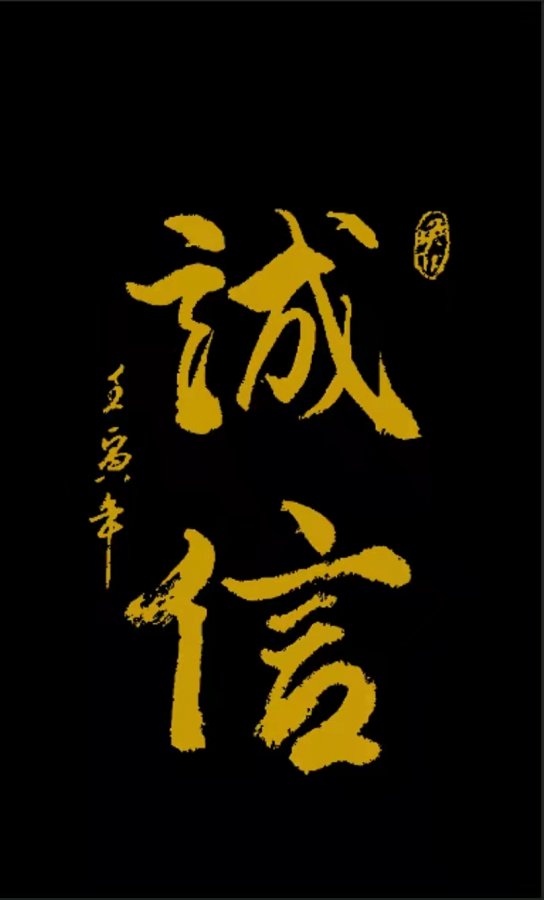 誠信
壬寅年